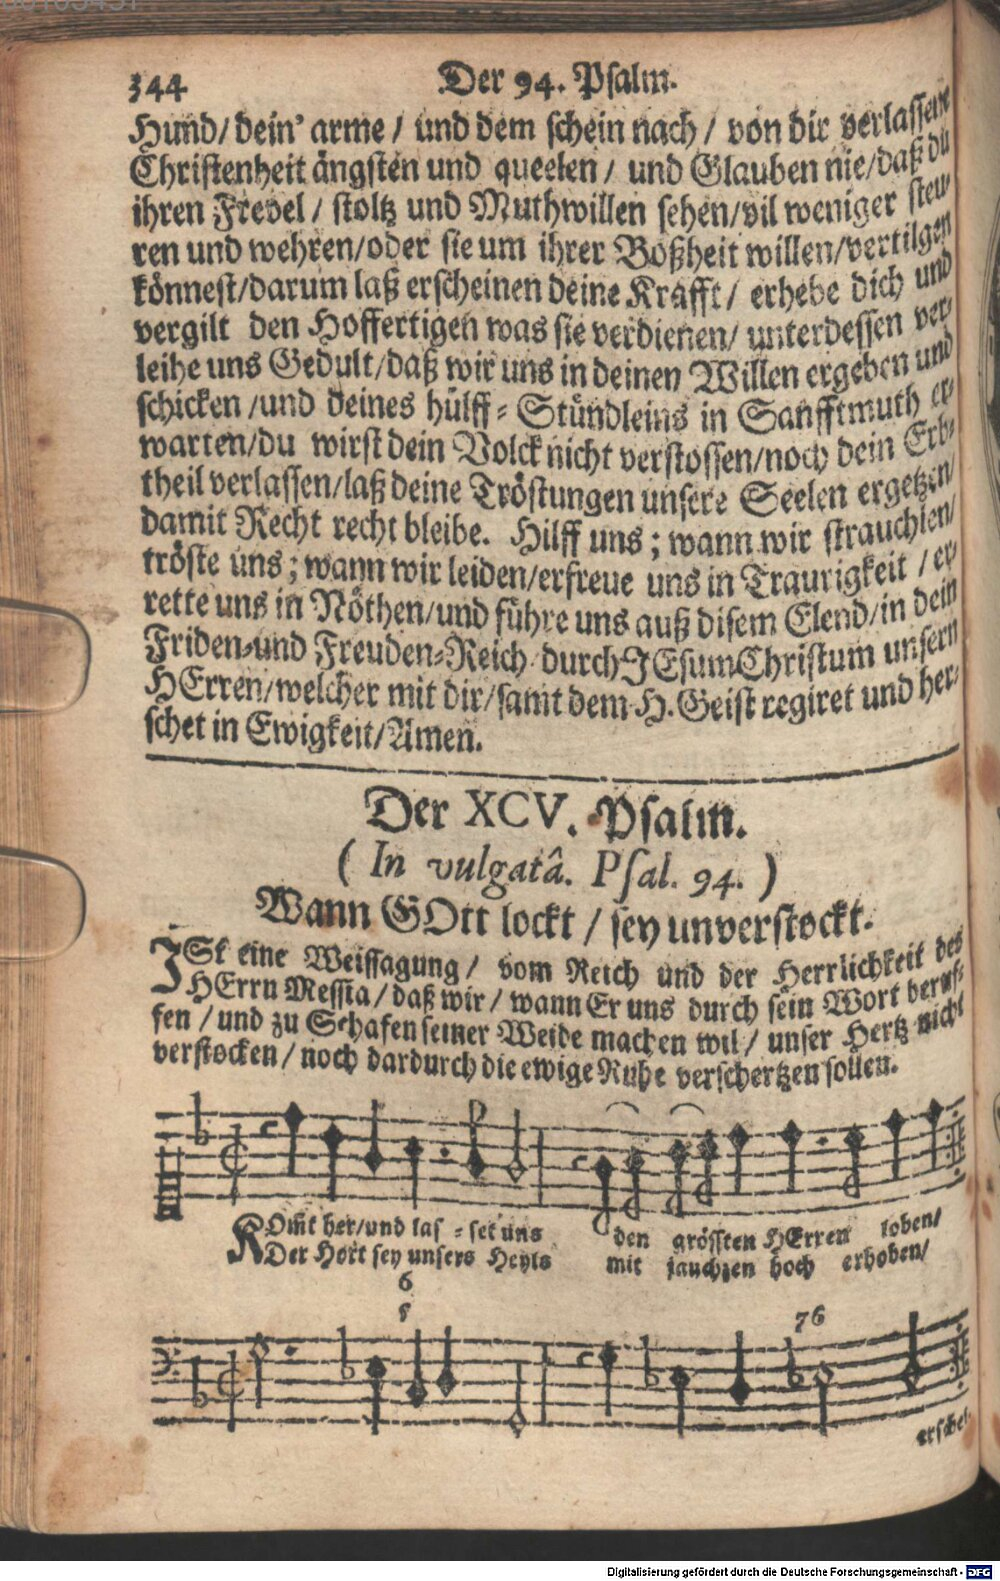 344 Der 94. Psalm.
Hund/ dein' arme / und dem schein nach / von dir verlassene
Christenheit ängsten und queelen / und Glauben nie/daß du
ihren Frevel / stoltz und Muthwillen sehen/vil weniger steu-
ren und wehren/oder sie um ihrer Boßheit willen/vertilgen
könnest/darum laß erscheinen deine Krafft/ erhebe dich und
vergilt den Hoffertigen was sie verdienen/ unterdessen ver-
leihe uns Gedult/daß wir uns in deinen Willen ergeben und
schicken /und deines hülff-Stündleins in Sanfftmuth er-
warten/du wirst dein Volck nicht verstossen/noch dein Erb-
theil verlassen/laß deine Tröstungen unsere Seelen ergetzen/
damit Recht recht bleibe. Hilff uns ; wann wir strauchlen/
tröste uns ; wann wir leiden/erfreue uns in Traurigkeit / er-
rette uns in Nöthen/und führe uns auß disem Elend/in dein
Friden-und Freuden-Reich durch JEsum Christum unsern
HErren/welcher mit dir/samt dem H. Geist regiret und her-
schet in Ewigkeit/Amen.
Der XCV. Psalm.
( In vulgatâ. Psal. 94. )
Wann GOtt lockt / sey unverstockt.
JSt eine Weissagung/ vom Reich und der Herrlichkeit des
HErrn Messia/ daß wir/ wann Er uns durch sein Wort beruf-
fen / und zu Schafen seiner Weide machen wil/ unser Hertz nicht
verstocken/ noch dardurch die ewige Ruhe verschertzen sollen.
KOmt her/und las - set uns den grössten HErren loben/
Der Hort sey unsers Heyls mit jauchzen hoch erhoben/
6
5
76
erschei-
Digitalisierung gefördert durch die Deutsche Forschungsgemeinschaft - DFG